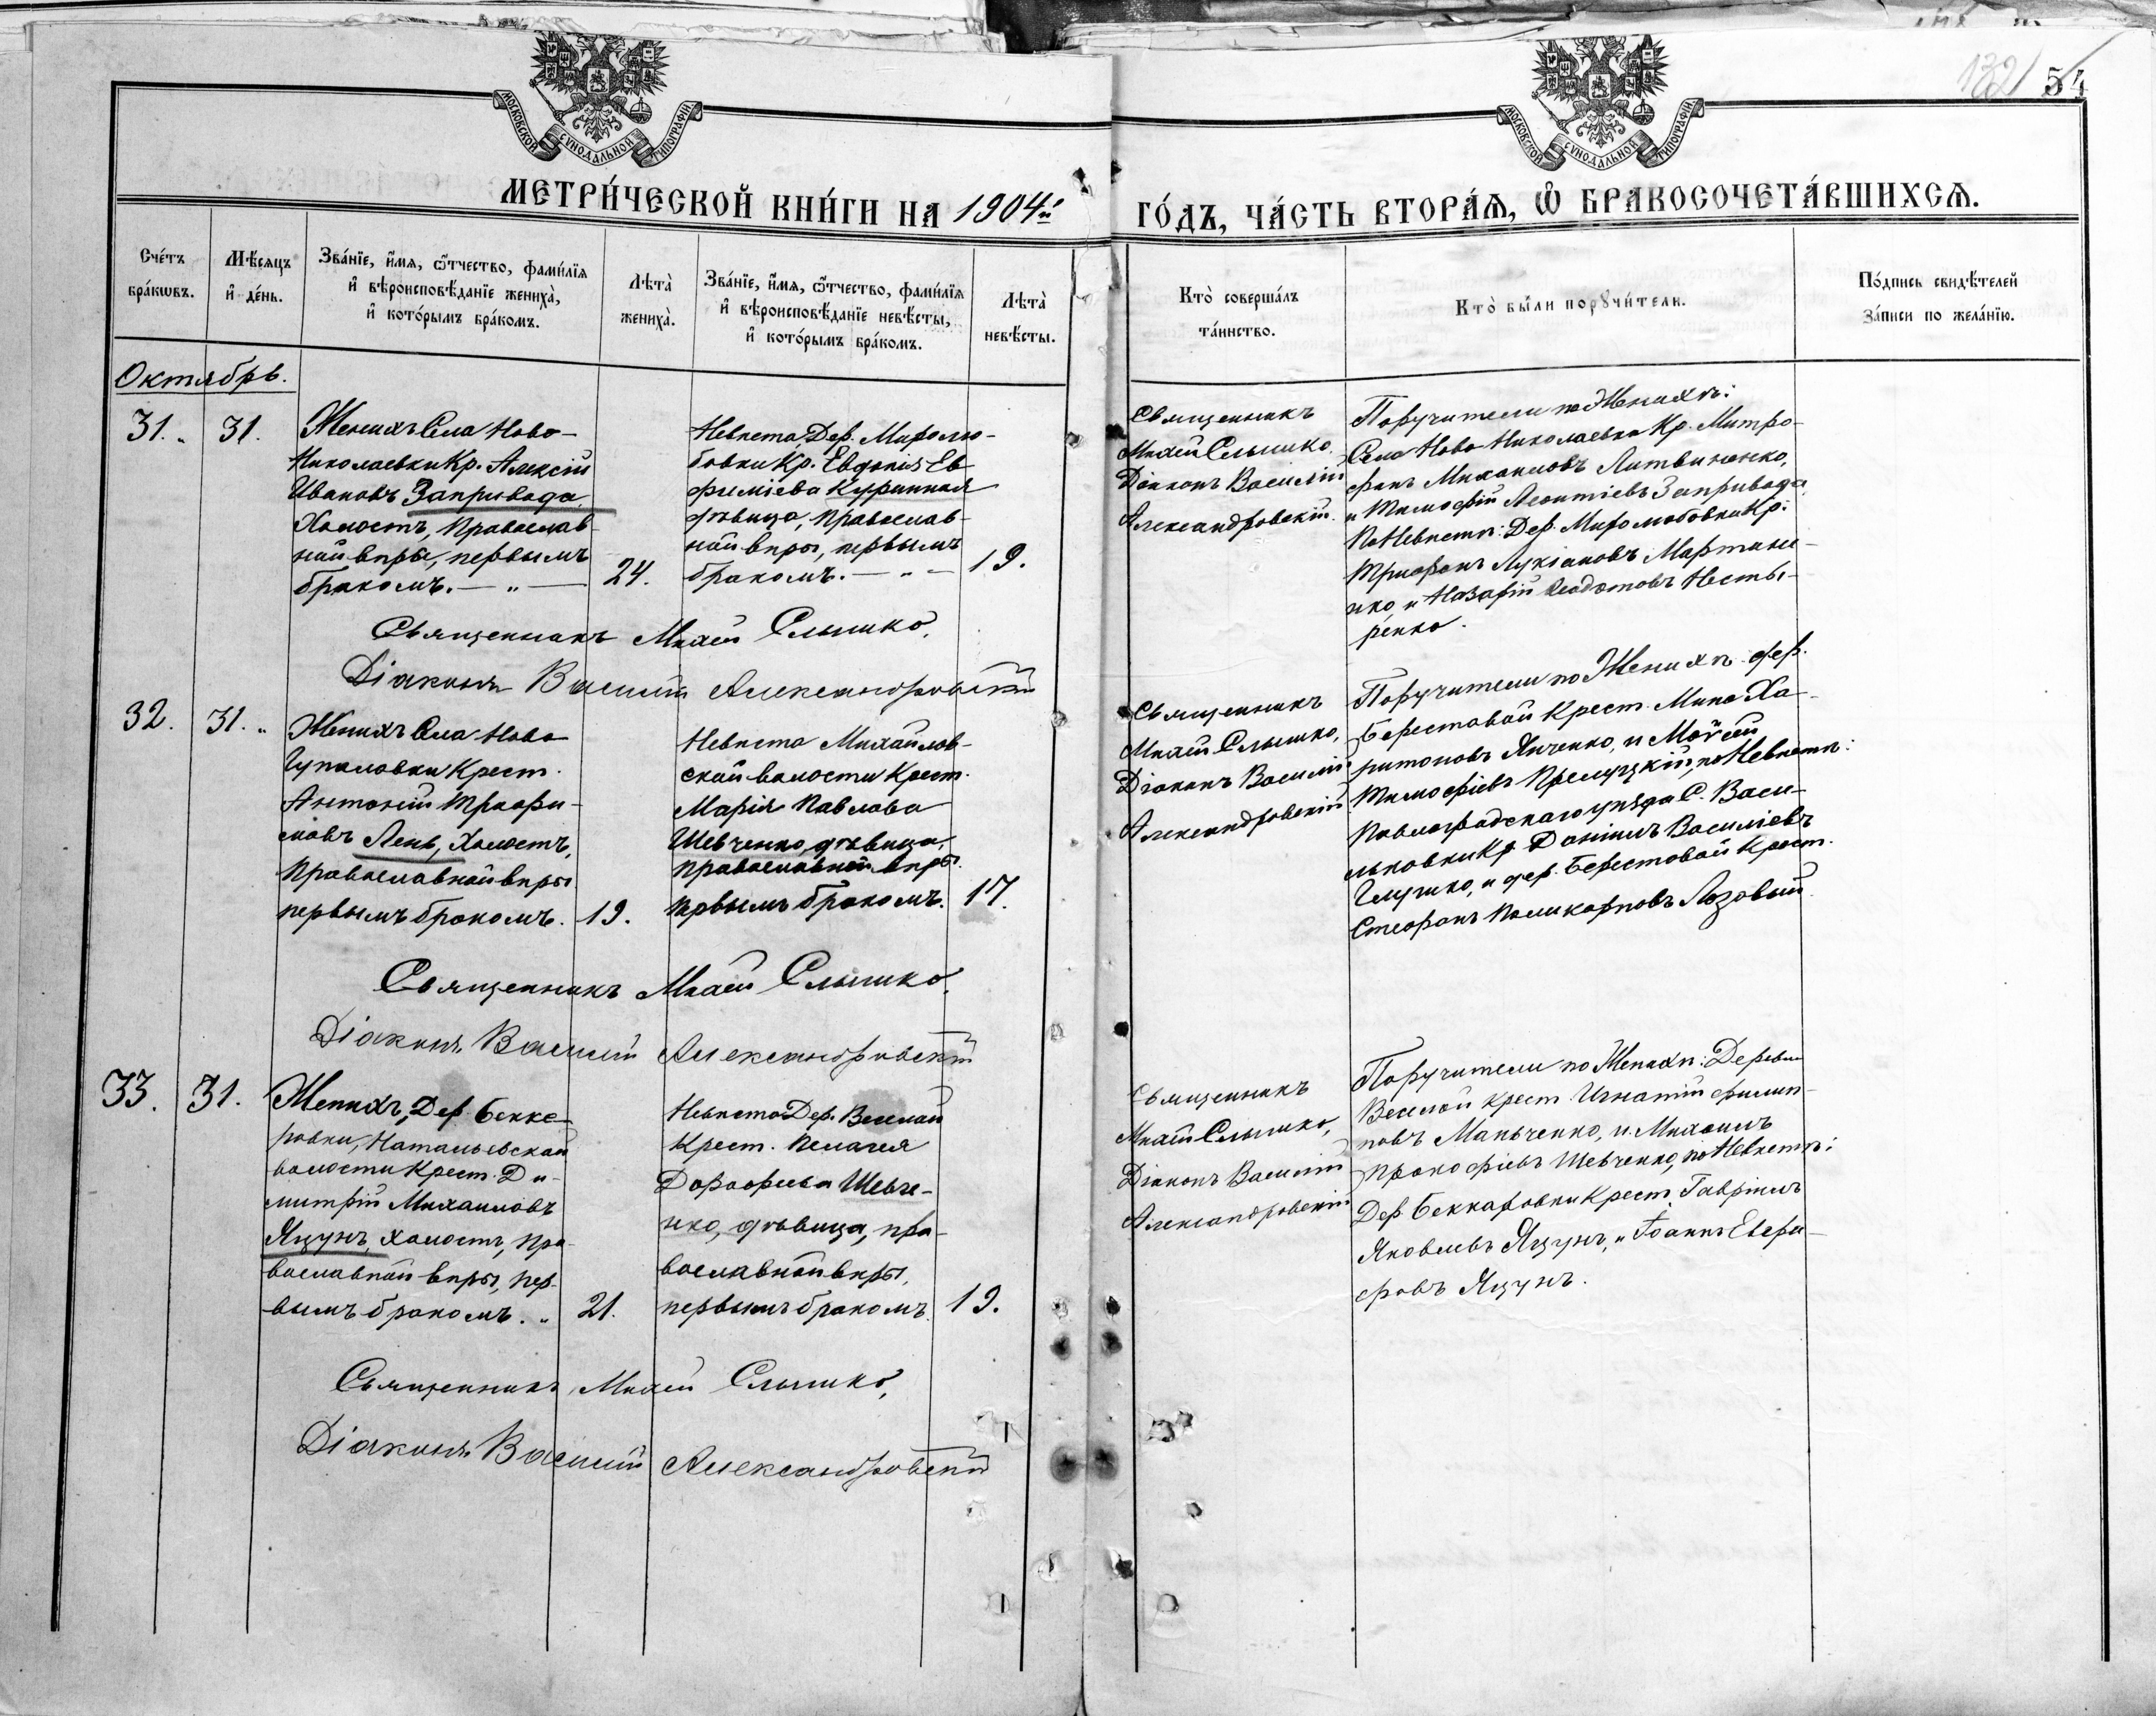 МОСКОВСКОЙ СѴНОДАЛЬНОЙ ТИПОГРАФІИ
МОСКОВСКОЙ СѴНОДАЛЬНОЙ ТИПОГРАФІИ
132 54
МЕТРИ́ЧЕСКОЙ КНИ́ГИ НА 1904й
ГО́ДЪ, ЧА́СТЬ ВТОРА́Ѧ, Ѡ҆ БРАКОСОЧЕТА́ВШИХСѦ.
Сче́тъ
бра́кѡвъ.
Мѣ́сяцъ
и҆ де́нь.
Зва́нїе, и҆́мя, ѻ҆́тчество, фами́лїя
и҆ вѣроисповѣ́данїе жениха̀,
и҆ кото́рымъ бра́комъ.
Лѣта̀
жениха̀.
Зва́нїе, и҆́мя, ѻ҆́тчество, фами́лїя
и҆ вѣроисповѣ́данїе невѣ́сты,
и҆ кото́рымъ бра́комъ.
Лѣта̀
невѣ́сты.
Кто̀ соверша́лъ
та́инство.
Кто̀ бы́ли порꙋчи́тели.
По́дпись свидѣ́телей
за́писи по жела́нїю.
Октябрь.
31.
31.
Женихъ Села Ново-
Николаевки Кр. Алексій
Ивановъ Запривода,
Холостъ, Православ-
ной вѣры, первымъ
бракомъ. — „ —
24.
Невѣста Дер. Миролю-
бовки Кр. Евдокія Ев-
фиміева Куринная
дѣвица, Православ-
ной вѣры, первымъ
бракомъ. — „ —
19.
Священникъ
Михаил Слышко,
Діаконъ Василій
Александровскій.
Поручители по Женихѣ:
Села Ново-Николаевки Кр. Митро-
фанъ Михаиловъ Литвиненко,
и Тимофій Леонтіевъ Запривода,
По Невѣстѣ: Дер. Миролюбовки Кр.
Трифонъ Лукіановъ Мартине-
нко, и Назарій Феодотовъ Несты-
ренко.
Священникъ Михаил Слышко,
Діаконъ Василій Александровскій
32.
31.
Женихъ Села Ново
Гупаловки Крест.
Антоній Трофи-
мовъ Лень, Холостъ,
Православной вѣры
первымъ бракомъ.
19.
Невѣста Михайлов-
ской волости Крест.
Марія Павлова
Шевченко, дѣвица,
Православной вѣры
первымъ бракомъ.
17.
Священникъ
Михаил Слышко,
Діаконъ Василій
Александровскій
Поручители по Женихѣ дер.
Берестовой Крест. Мина Ха-
ритоновъ Янченко, и Моѵсей
Тимофіевъ Прелуцкій, по Невѣстѣ:
Павлоградскаго уѣзда С. Васи-
льковки Кр. Даніилъ Василіевъ
Глушко, и дер. Берестовой Крест.
Стефанъ Поликарповъ Лозовый
Священникъ Михаил Слышко,
Діаконъ Василій Александровскій
33.
31.
Женихъ, Дер. Бекке-
ровки, Натальевской
волости Крест. Ди-
митрій Михаиловъ
Яцунъ, холостъ, Пра-
вославной вѣры, пер-
вымъ бракомъ. „
21.
Невѣста Дер. Веселой
Крест. Пелагея
Дорофеева Шевче-
нко, дѣвица, пра-
вославной вѣры,
первымъ бракомъ.
19.
Священникъ
Михаил Слышко,
Діаконъ Василій
Александровскій
Поручители по Женихѣ: Деревни
Веселой Крест. Игнатій Филип-
повъ Маньченко, и Михаилъ
Прокофіевъ Шевченко, по Невѣстѣ:
Дер. Беккаровки Крест. Гавріилъ
Яковлевъ Яцунъ, и Іоаннъ Евфи-
фровъ Яцунъ.
Священникъ Михаил Слышко,
Діаконъ Василій Александровскій